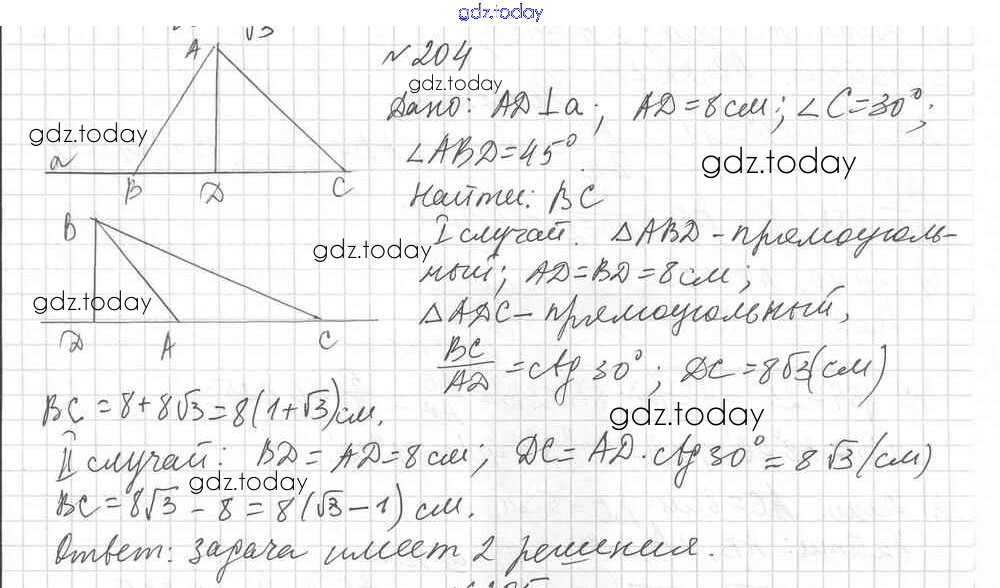 gdz.today
√3
№204
gdz.today
Дано: AD⊥a; AD=8см; ∠C=30°;
gdz.today
∠ABD=45°.
gdz.today
a
B D C
A
Найти: BC
I случай. △ABD – прямоуголь-
B
gdz.today
ный; AD=BD=8см;
gdz.today
△ADC – прямоугольный,
D A C
BC/AD = ctg 30°; DC=8√3(см)
BC=8+8√3=8(1+√3)см.
gdz.today
II случай: BD=AD=8см; DC=AD·ctg30°=8√3(см)
gdz.today
BC=8√3-8=8(√3-1) см.
Ответ: задача имеет 2 решения.